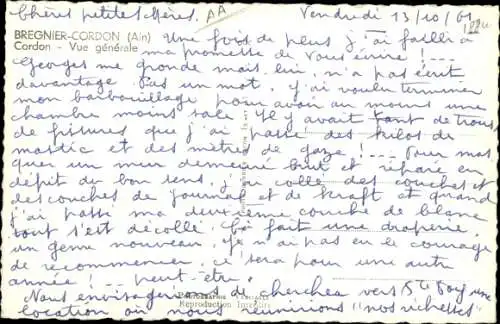 Chères petites Mères. AA Vendredi 13/10/61
BREGNIER-CORDON (Ain)
Cordon - Vue générale
Une fois de plus j'ai failli à
ma promesse de vous écrire! ...
Georges me gronde mais lui, n'a pas écrit
davantage. Pas un mot. J'ai voulu terminer
mon barbouillage pour avoir au moins une
chambre moins sale. Il y avait tant de trous
de fissures que j'ai passé des kilos de
mastic et des mètres de gaze! ... Pour mas
quer un mur demeuré brut et réparé en
dépit du bon sens, j'ai collé des couches et
des couches de journal et de kraft et quand
j'ai passé ma deuxième couche de blanc
tout s'est décollé. Ça fait une draperie
un genre nouveau. Je n'ai pas eu le courage
de recommencer. Ce sera pour une autre
année! ... peut-être.
Nous envisageons de chercher vers Ste Foy une
Reproduction Interdite
location où nous réunirions "nos richesses"